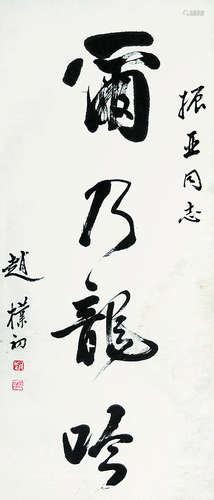 振亚同志
爾乃龍吟
趙樸初